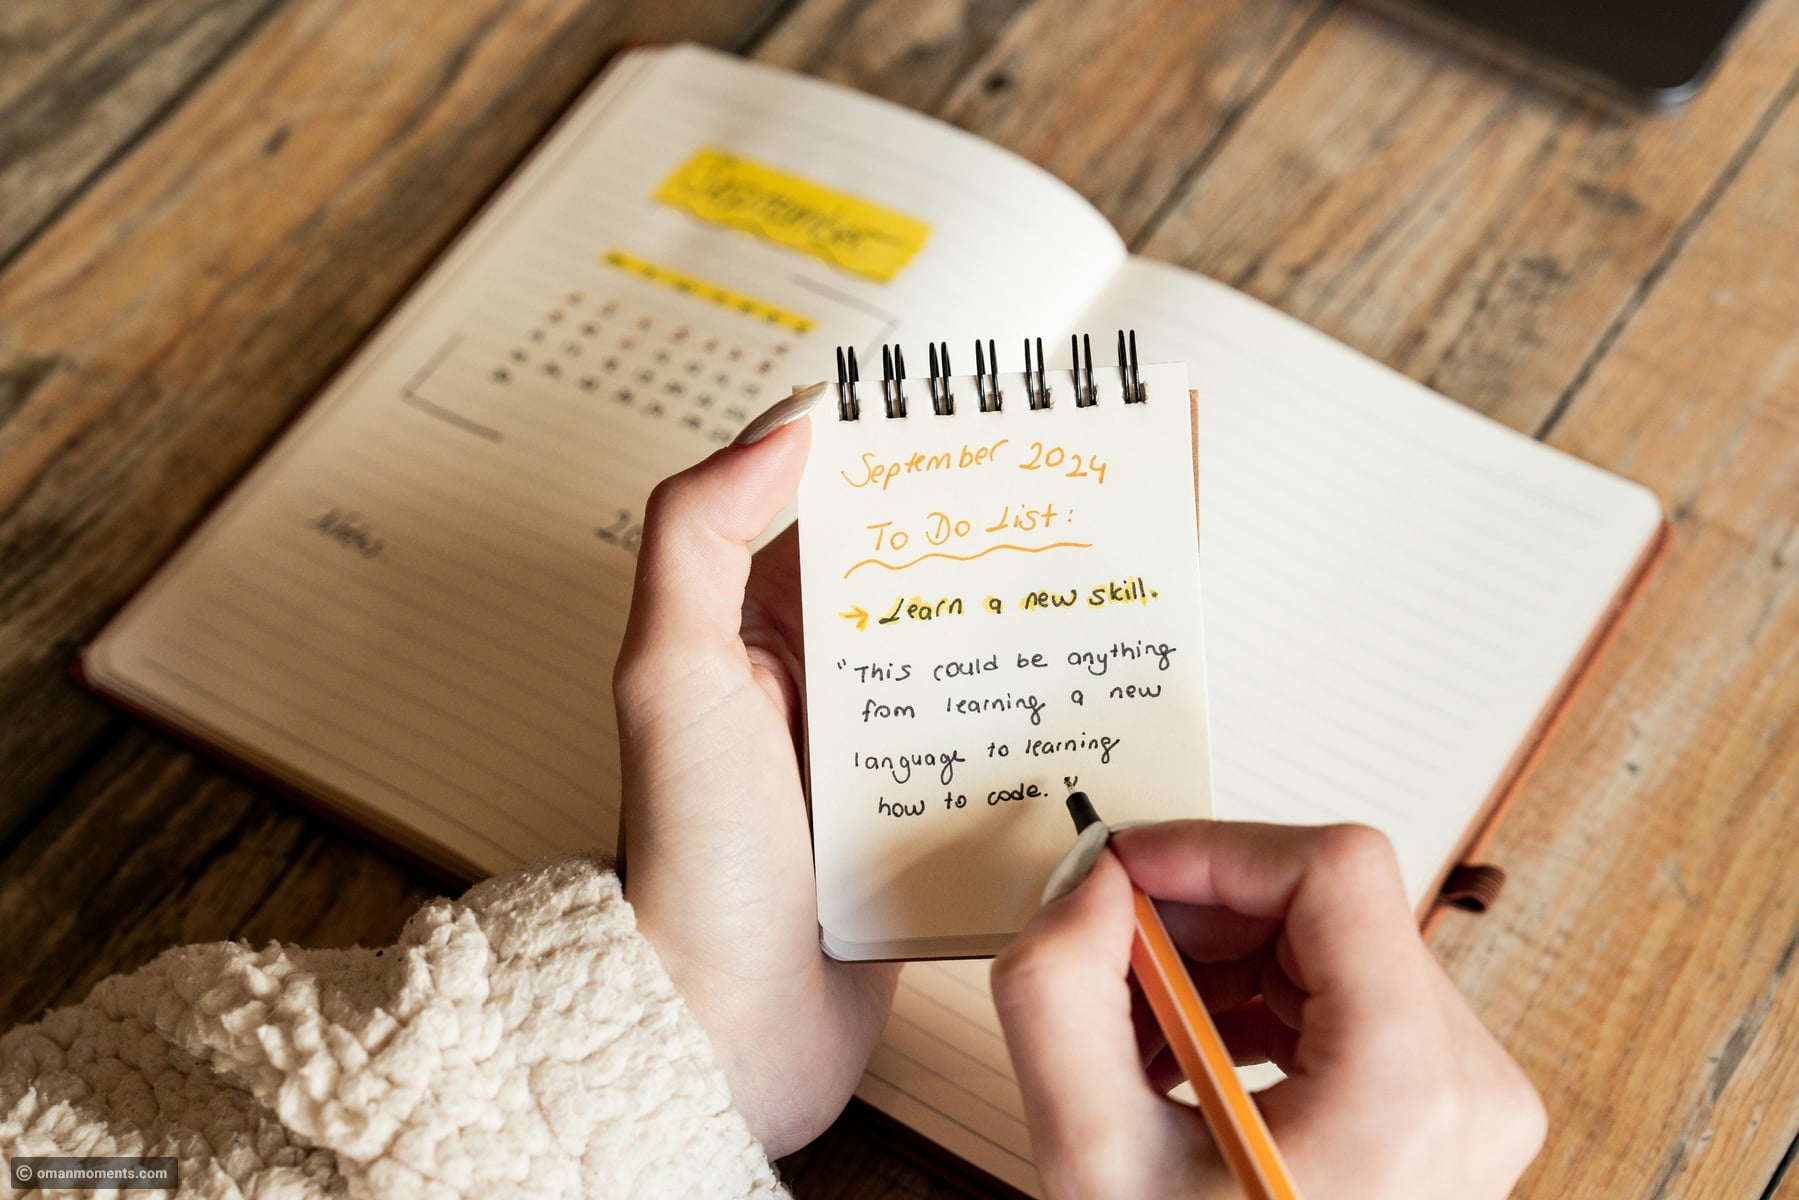 September
Notes
September 2024
To Do List:
→ Learn a new skill.
"This could be anything
from learning a new
language to learning
how to code. "
© omanmoments.com